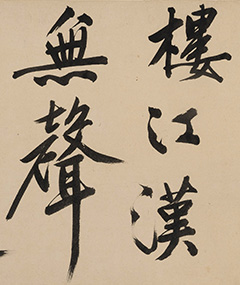 樓江漢
無聲